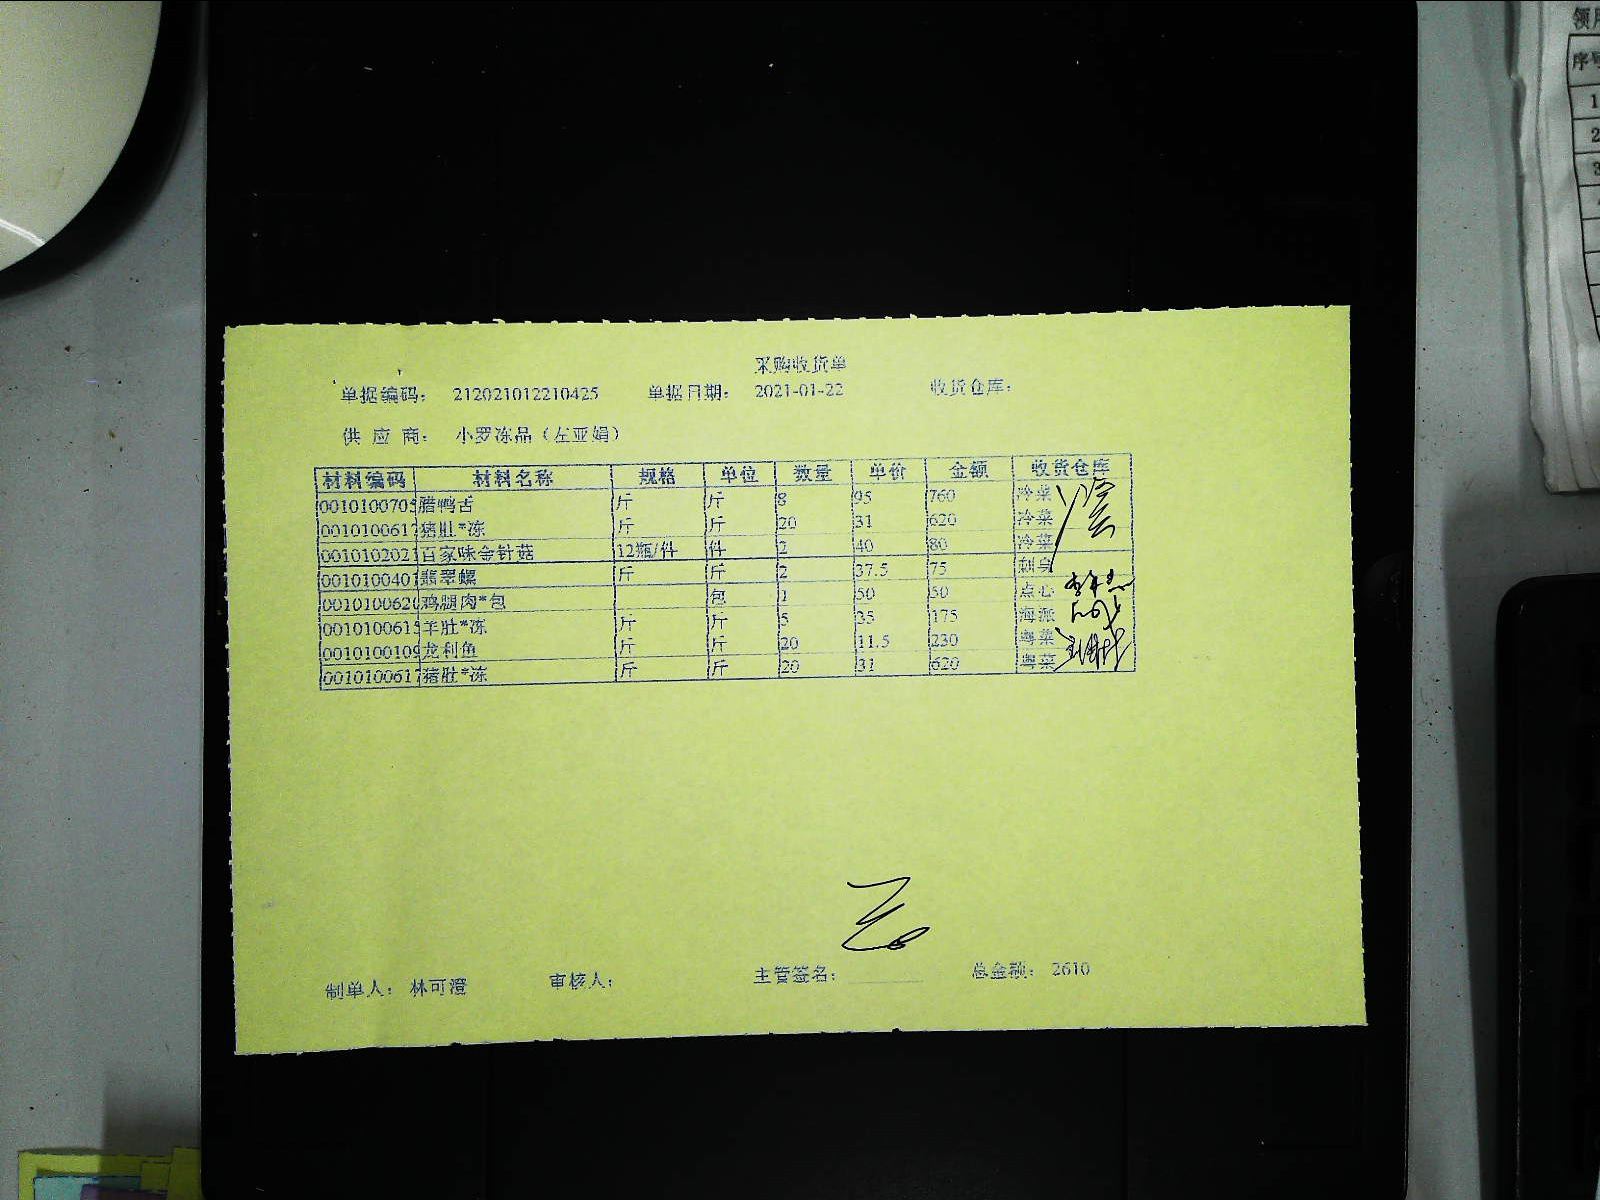 采购收货单
单据编码： 212021012210425 单据日期： 2021-01-22 收货仓库：
供 应 商： 小罗冻品（左亚娟）
材料编码 材料名称 规格 单位 数量 单价 金额 收货仓库
0010100705 腊鸭舌 斤 斤 8 95 760 冷菜
0010100617 猪肚*冻 斤 斤 20 31 620 冷菜
0010102021 百家味金针菇 12瓶/件 件 2 40 80 冷菜
0010100401 翡翠螺 斤 斤 2 37.5 75 刺身
0010100620 鸡腿肉*包 包 1 50 50 点心
0010100615 羊肚*冻 斤 斤 5 35 175 海派
0010100109 龙利鱼 斤 斤 20 11.5 230 粤菜
0010100617 猪肚*冻 斤 斤 20 31 620 粤菜
制单人： 林可澄 审核人： 主管签名： 总金额： 2610
领用
序号
1
2
3